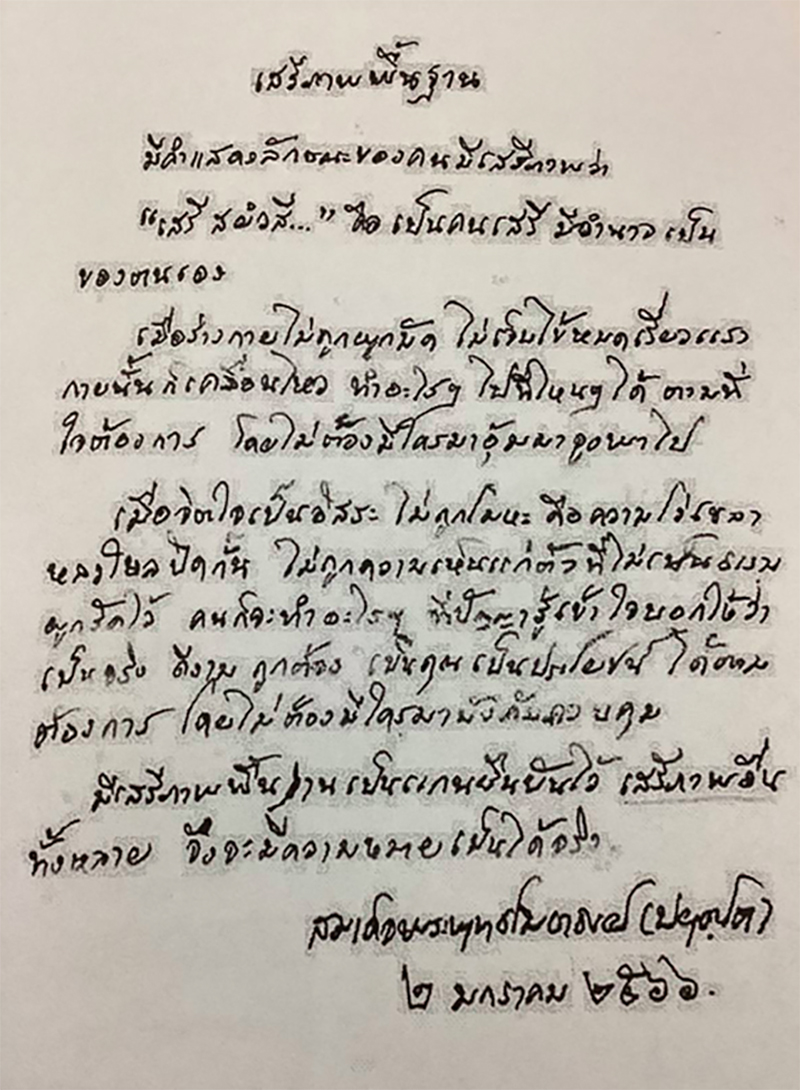 เสรีภาพพื้นฐาน
มีคำแสดงลักษณะของคนมีเสรีภาพว่า
“เสรี สยํวสี...” คือ เป็นคนเสรี มีอำนาจ เป็น
ของตนเอง
เมื่อร่างกายไม่ถูกผูกมัด ไม่เจ็บไข้หมดเรี่ยวแรง
กายนั้นก็เคลื่อนไหว ทำอะไรๆ ไปที่ไหนๆ ได้ ตามที่
ใจต้องการ โดยไม่ต้องมีใครมาอุ้มมาจูงพาไป
เมื่อจิตใจเป็นอิสระ ไม่ถูกโมหะ คือความโง่เขลา
หลงใหลปิดกั้น ไม่ถูกความเห็นแก่ตัวที่ไม่เป็นธรรม
ผูกรัดไว้ คนก็จะทำอะไรๆ ที่ปัญญารู้เข้าใจบอกให้ว่า
เป็นจริง ดีงาม ถูกต้อง เป็นคุณ เป็นประโยชน์ ได้ตาม
ต้องการ โดยไม่ต้องมีใครมาบังคับควบคุม
มีเสรีภาพพื้นฐานเป็นแกนยืนยันไว้ เสรีภาพอื่น
ทั้งหลาย จึงจะมีความหมายเป็นได้จริง
สมเด็จพระพุทธโฆษาจารย์ (ป.อ.ปยุตฺโต)
๒ มกราคม ๒๕๖๖.